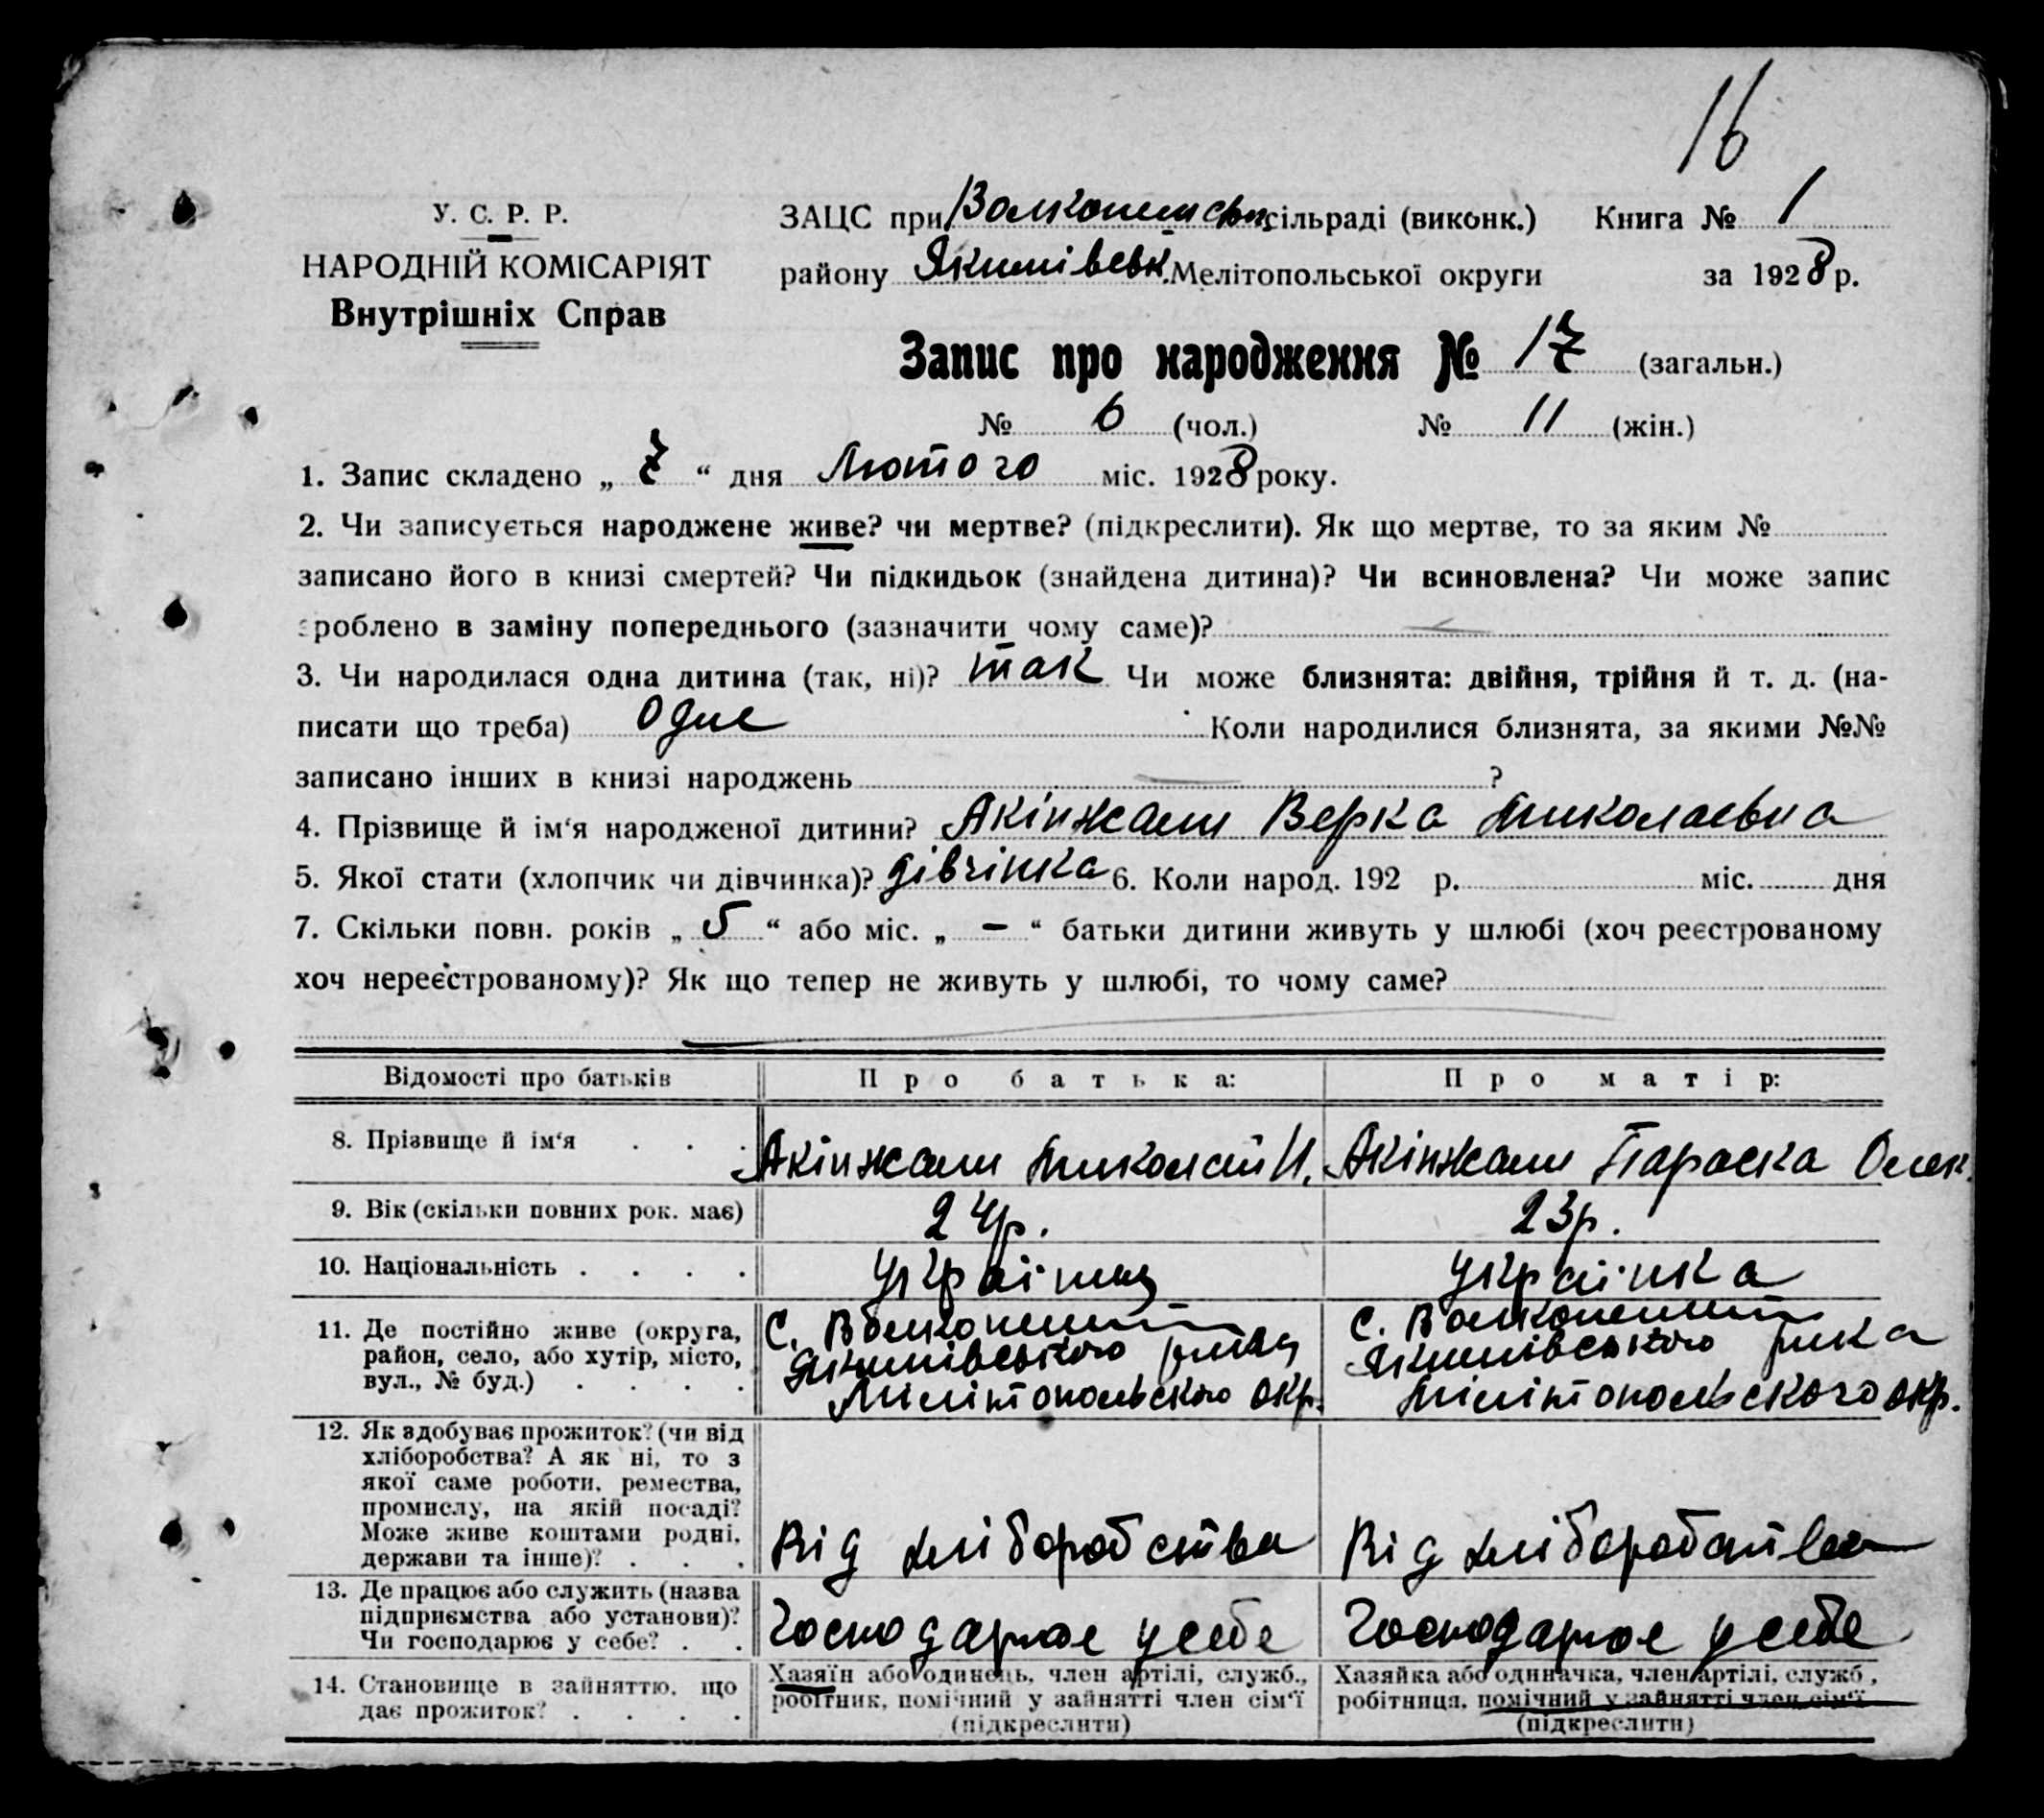 16
У. С. Р. Р.
НАРОДНІЙ КОМІСАРІЯТ
Внутрішніх Справ
ЗАЦС при сільраді (виконк.) Книга № 1
району Якимівськ. Мелітопольської округи за 1928 р.
Запис про народження № 17 (загальн.)
№ 6 (чол.) № 11 (жін.)
1. Запис складено „ 7 “ дня Лютого міс. 1928 року.
2. Чи записується народжене живе? чи мертве? (підкреслити). Як що мертве, то за яким №
записано його в книзі смертей? Чи підкидьок (знайдена дитина)? Чи всиновлена? Чи може запис
зроблено в заміну попереднього (зазначити чому саме)? —
3. Чи народилася одна дитина (так, ні)? так Чи може близнята: двійня, трійня й т. д. (на-
писати що треба) Одне Коли народилися близнята, за якими №№
записано інших в книзі народжень — ?
4. Прізвище й ім‘я народженої дитини? Акінжали Верка Миколаевна
5. Якої стати (хлопчик чи дівчинка)? дівчінка 6. Коли народ. 192 р. міс. дня
7. Скільки повн. років „ 5 “ або міс. „ — “ батьки дитини живуть у шлюбі (хоч реєстрованому
хоч нереєстрованому)? Як що тепер не живуть у шлюбі, то чому саме?
Відомості про батьків Про батька: Про матір:
8. Прізвище й ім‘я . . . Акінжали Миколай И. Акінжали Параска Олек.
9. Вік (скільки повних рок. має) 24р. 23р.
10. Національність . . . . українец українка
11. Де постійно живе (округа,
район, село, або хутір, місто,
вул., № буд.) . . . .
С.
Якимівського
Мілітопольского окр.
С.
Якимівського
Мілітопольского окр.
12. Як здобуває прожиток? (чи від
хліборобства? А як ні, то з
якої саме роботи, ремества,
промислу, на якій посаді?
Може живе коштами родні,
держави та інше)? . . .
Від хліборобства
Від хліборобства
13. Де працює або служить (назва
підприємства або установи)?
Чи господарює у себе? . .
Господарює у себе
Господарює у себе
14. Становище в зайняттю, що
дає прожиток? . . . .
Хазяїн або одинець, член артілі, служб.,
робітник, помічний у зайнятті член сім‘ї
(підкреслити)
Хазяйка або одиначка, член артілі, служб.,
робітниця, помічний у зайнятті член сім‘ї
(підкреслити)